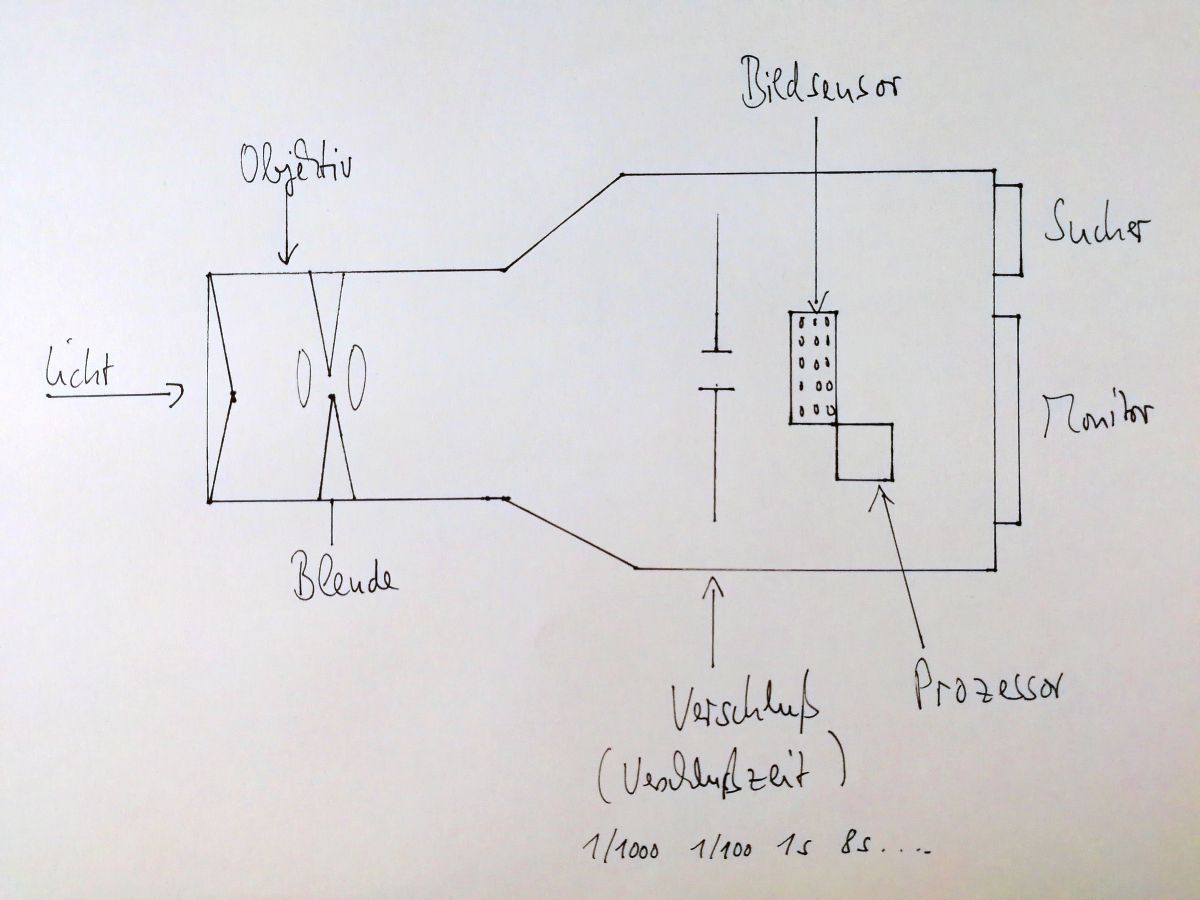 Bildsensor
Objektiv
Sucher
Licht
Monitor
Blende
Prozessor
Verschluß
(Verschlußzeit)
1/1000 1/100 1s 8s....